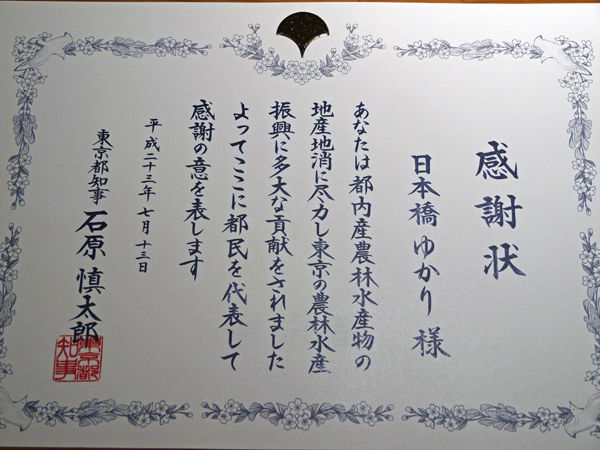 感謝状
日本橋ゆかり 様
あなたは都内産農林水産物の
地産地消に尽力し東京の農林水産
振興に多大な貢献をされました
よってここに都民を代表して
感謝の意を表します
平成二十三年七月十三日
東京都知事 石原慎太郎
東京都
知事